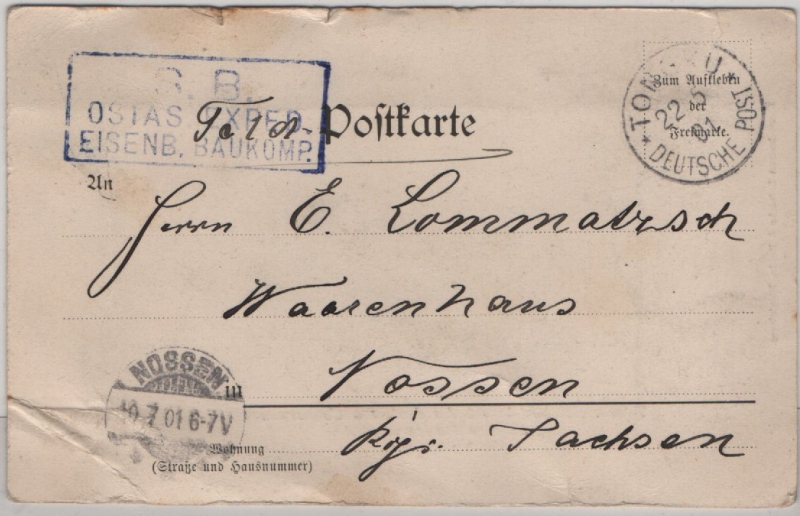 S. B.
OSTAS. EXPED.
EISENB. BAUKOMP.
Feld-Postkarte
TONGKU
22 5
01
DEUTSCHE POST
Zum Aufkleben
der
Freimarke.
An
Herrn E. Lommatzsch
Waarenhaus
NOSSEN
10.7.01 6-7V
in
Nossen
Kgr. Sachsen
Wohnung
(Straße und Hausnummer)